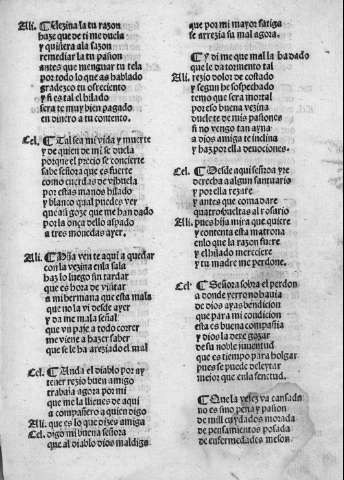 Ali. Vezina la tu razon
haze que de ti me duela
y quisiera ala sazon
remediar la tu passion
antes que menguar tu tela
por todo lo que as hablado
gradezco tu ofreciento
y si es tal el hilado
sera te muy bien pagado
en dinero a tu contento.
Cel. Tal sea mi vida y muerte
y de quien de mi se duela
porque el precio se concierte
sabe señora que es fuerte
como cuerdas de vihuela
por estas manos hilado
y blanco qual puedes ver
que assi goze que me han dado
por la onça dello aspado
a tres monedas ayer.
Ali. Hija ven te aqui a quedar
con la vezina enla sala
haz lo luego sin tardar
que es hora de visitar
a mi hermana que esta mala
que no la vi desde ayer
y da me mala señal
que vn paje a todo correr
me viene a hazer saber
que se le ha areziado el mal
Cel. Anda el diablo por ay
tener rezio buen amigo
trabaja agora por mi
que me la lleues de aqui
a compañero a quien digo
Ali. que es lo que dizes amiga
Cel. digo mi buena señora
que al diablo dios maldiga
que por mi mayor fatiga
se arrezia su mal agora.
Y di me que mal la ha dado
que le da tormento tal
Ali. rezio dolor de costado
y segun he sospechado
temo que sera mortal
por eso buena vezina
duele te de mis passiones
si no vengo tan ayna
a dios amiga te inclina
y haz por ella deuociones.
Cel. Desde aqui señora yre
derecha a algun santuario
y por ella rezare
y antes que coma dare
quatro bueltas al rosario
Ali. pues hija mira que quiere
y contenta esta matrona
enlo que la razon fuere
y el hilado mereciere
y tu madre me perdone.
Cel. Señora sobra el perdon
a donde yerro no hauia
de dios ayas bendicion
que para mi condicion
esta es buena compañia
y dios la dexe gozar
de su noble juuentud
que es tiempo para holgar
pues se puede deleytar
mejor que enla senectud.
Que la vejez va cansada
no es sino pena y passion
de mill cuydados morada
de pensamientos posada
de enfermedades meson